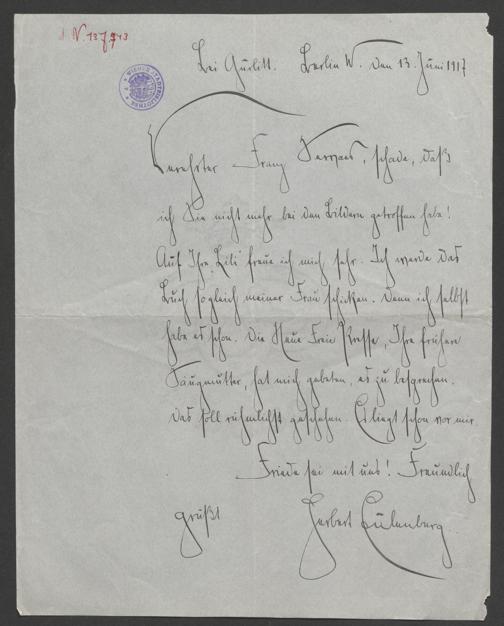 J. N. 137943
WIENER STADTBIBLIOTHEK
Bei Gurlitt. Berlin W. den 13. Juni 1917
Verehrter Franz Servaes, schade, daß
ich Sie nicht mehr bei den Bildern getroffen habe!
Auf Ihre „Lili“ freue ich mich sehr. Ich werde das
Buch sogleich meiner Frau schicken. Denn ich selbst
habe es schon. Die Neue Freie Presse, Ihre frühere
Säugmutter, hat mich gebeten, es zu besprechen.
Das soll rühmlichst geschehen. Es liegt schon vor mir.
Friede sei mit uns! Freundlich
grüßt Herbert Eulenberg